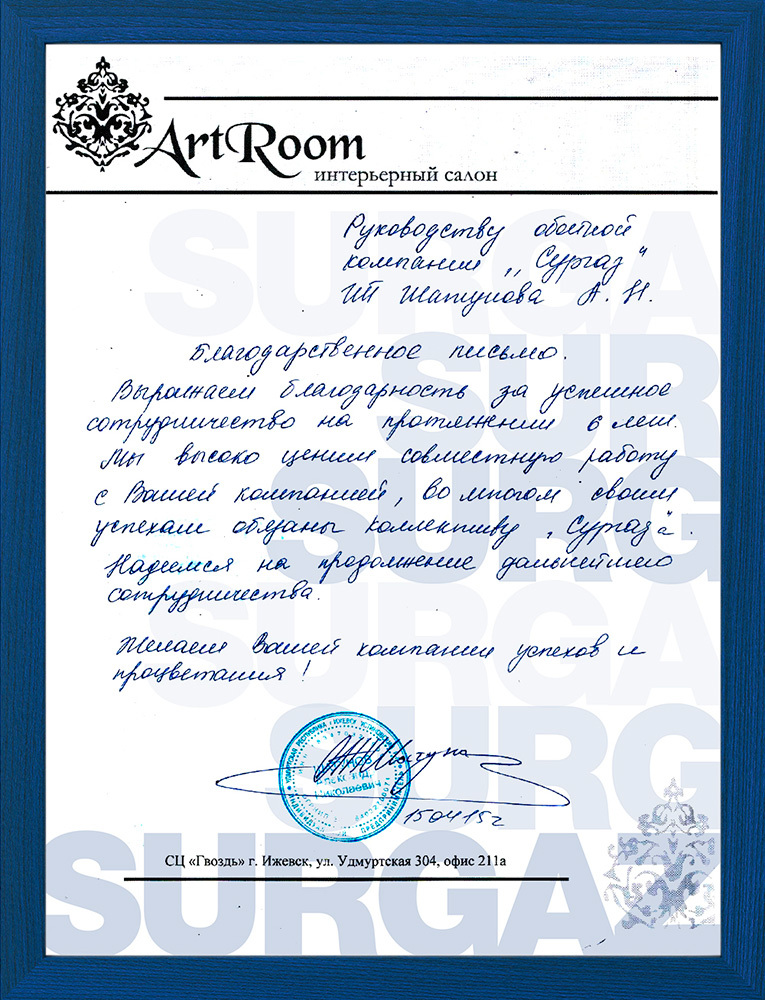 ArtRoom
интерьерный салон
Руководству обойной
компании „Сургаз"
ИП Шатунова А. Н.
Благодарственное письмо.
Выражаем благодарность за успешное
сотрудничество на протяжении 6 лет.
Мы высоко ценим совместную работу
с Вашей компанией, во многом своим
успехам обязаны коллективу „Сургаз".
Надеемся на продолжение дальнейшего
сотрудничества.
Желаем Вашей компании успехов и
процветания!
Николаевич
150415г
СЦ «Гвоздь» г. Ижевск, ул. Удмуртская 304, офис 211а
SURGA
SUR
SURG
SURGA
SURG
SURGAZ